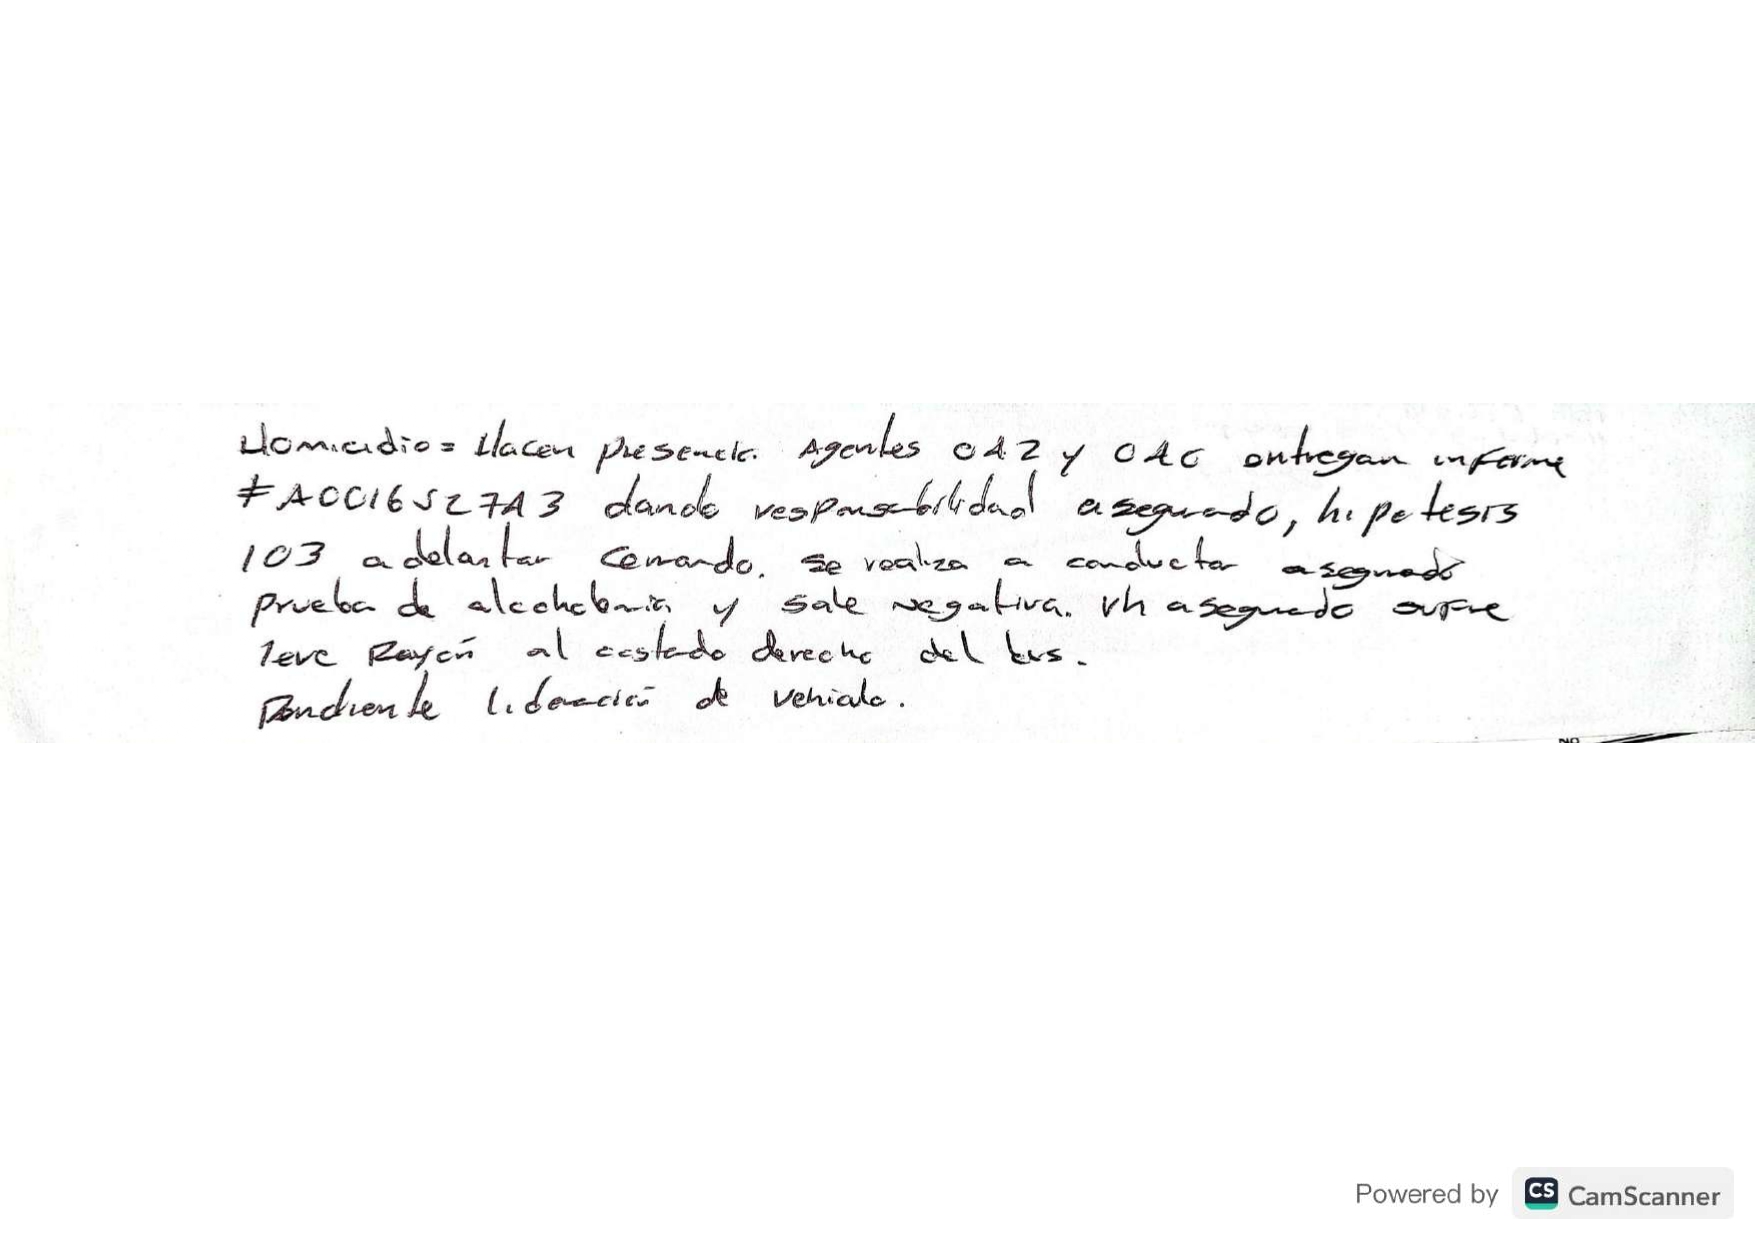 Homicidio = Hacen presencia Agentes 042 y 040 entregan informe
# A001652743 dando responsabilidad asegurado, hipotesis
103 adelantar cerrando. se realiza a conductor asegurado
prueba de alcoholemia y sale negativa. vh asegurado sufre
leve Rayón al costado derecho del bus.
Pendiente liberación de vehiculo.
NO
Powered by CS CamScanner